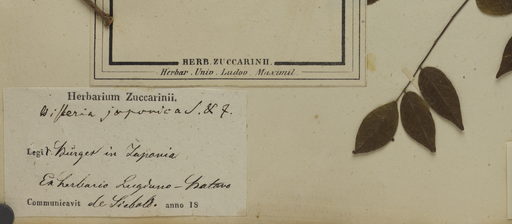 HERB. ZUCCARINII.
Herbar. Univ. Ludov. Maximil.
Herbarium Zuccarinii.
Wisteria japonica S. & Z.
Legit Bürger in Japonia
Ex herbario Lugduno-Batavo
Communicavit de Siebold. anno 18